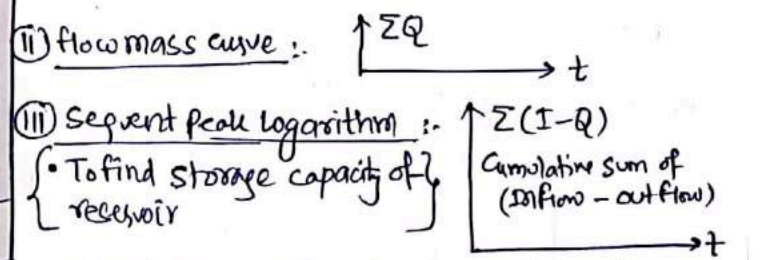 (ii) flow mass curve :- ΣQ
t
(iii) Sequent Peak Logarithm :- Σ(I-Q)
• To find storage capacity of
reservoir
Cumulative sum of
(Inflow - outflow)
t